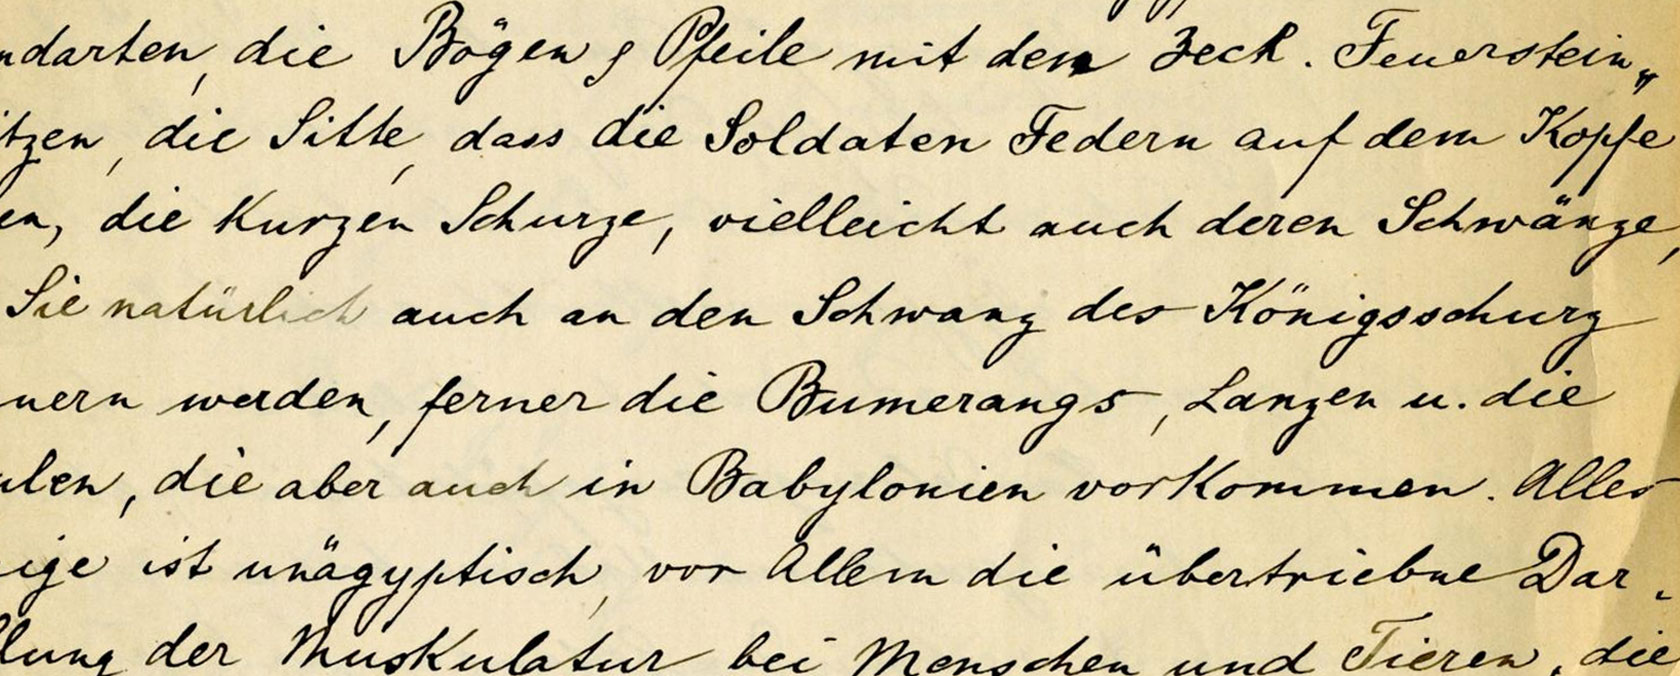 ndarten, die Bögen & Pfeile mit dem Feuerstein„
itzen, die Sitte, dass die Soldaten Federn auf dem Kopfe
en, die kurzen Schurze, vielleicht auch deren Schwänze,
Sie natürlich auch an den Schwanz des Königsschurz
nern werden, ferner die Bumerangs, Lanzen u. die
ulen, die aber auch in Babylonien vorkommen. Alles
ige ist unägyptisch, vor Allem die übertriebne Dar-
llung der Muskulatur bei Menschen und Tieren, die